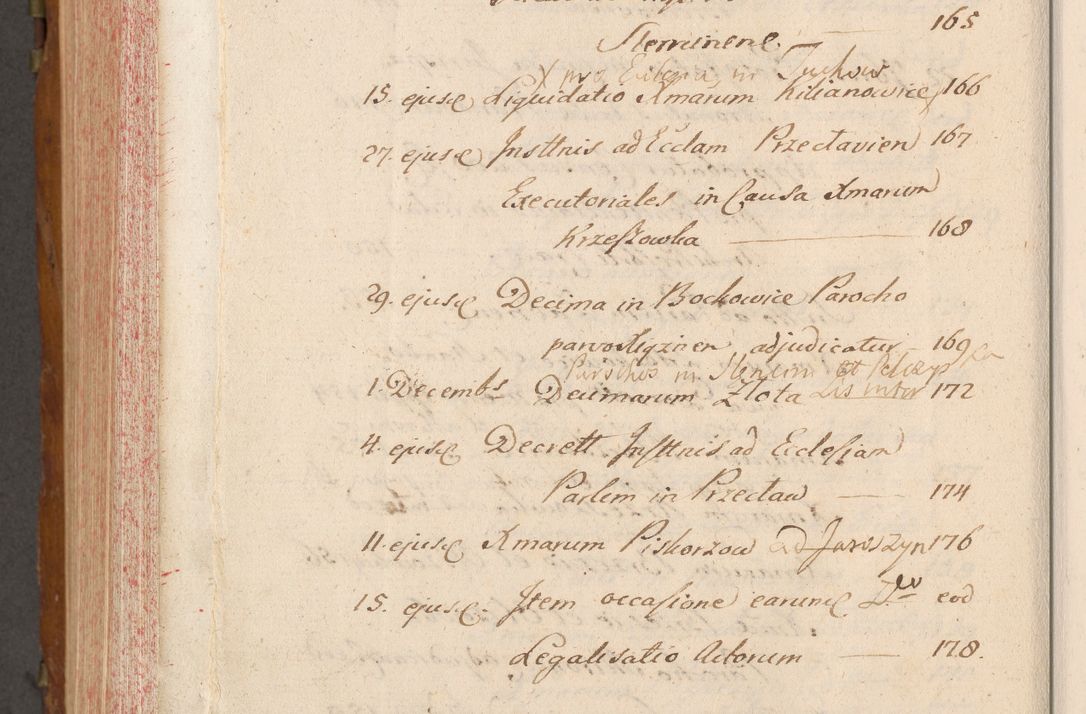 165
Slerninens
X pro Ecclesia in Tuchow
15. ejusq Liquidatio Xmarum Kilianowice 166
27. ejusq Insttnis ad Ecclam Przeclavien 167
Executoriales in Causa Xmarum
Krzeszowka 168
29. ejusq Decima in Bochowice Parocho
adjudicatur 169
Parochos in et
1. Decembs Decimarum Zlota Lis inter 172
4. ejusq Decrett Insttnis ad Ecclesiam
Parlem in Przeclaw 174
11. ejusq Xmarum Piskorzow ad Jaroszyn 176
15. ejusq. Item occasione earunq eod
Legalisatio Actorum 178.